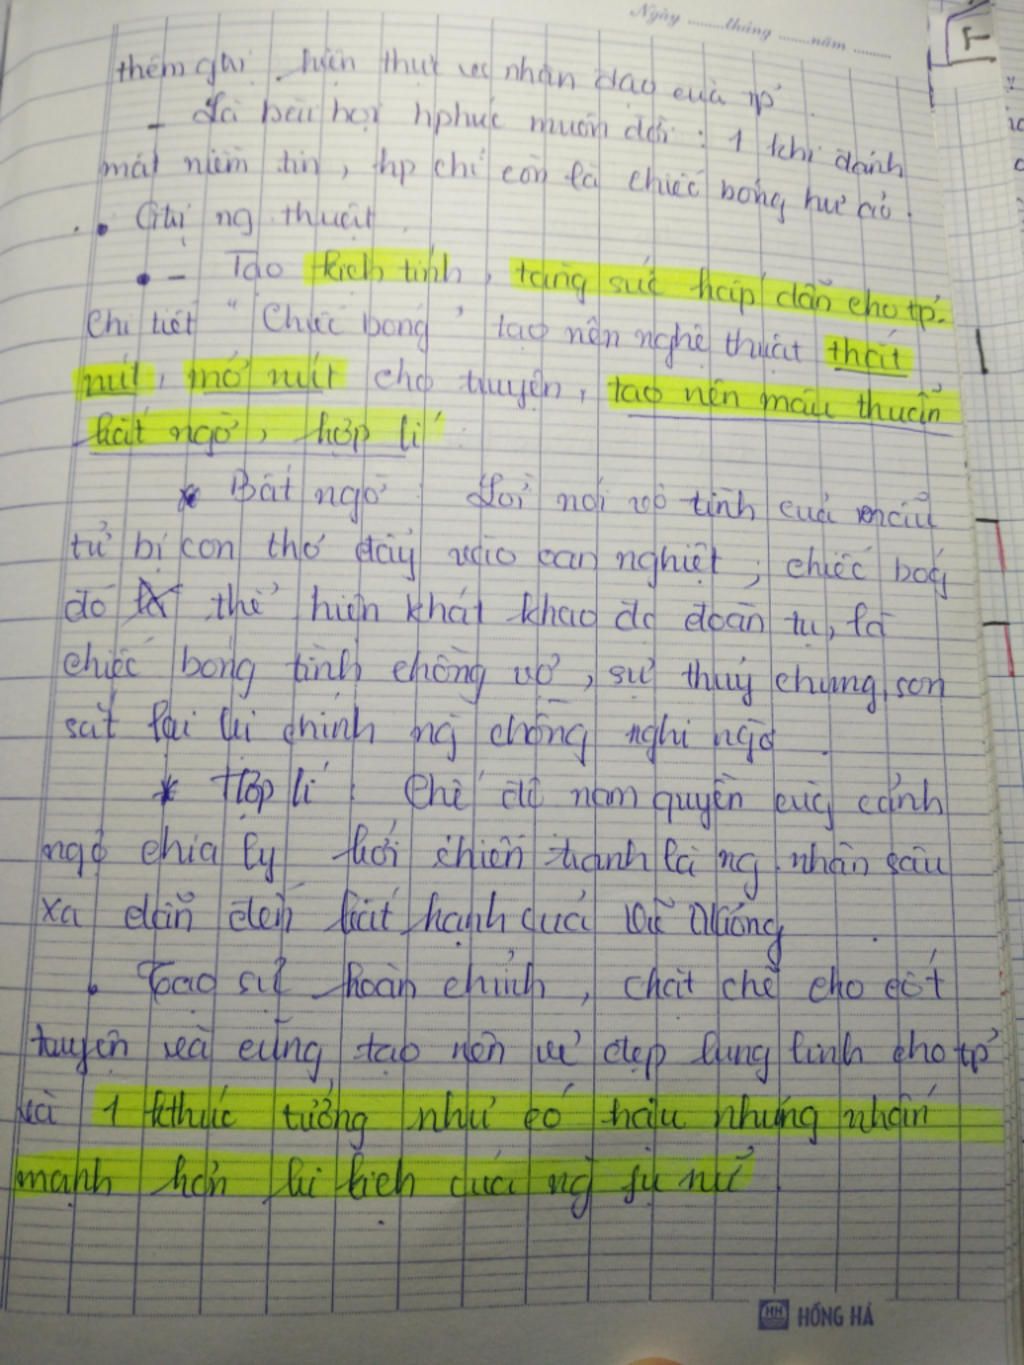 Ngày ........tháng .......năm .........
T
thêm giá hiện thực và nhân đạo của tp
- Là bài học hphúc muôn đời : 1 khi đánh
mất niềm tin, hp chỉ còn là chiếc bóng hư ảo.
• Giá ng thuật
• - Tạo kịch tính, tăng sức hấp dẫn cho tp.
Chi tiết "Chiếc bóng" tạo nên nghệ thuật thắt
nút, mở nút cho truyện, tạo nên mâu thuẫn
bất ngờ, hợp lí
* Bất ngờ : Lời nói vô tình của
tử bị con thơ đẩy vào oan nghiệt ; chiếc bóg
đó thể hiện khát khao đc đoàn tụ, là
chiếc bóng tình chồng vợ, sự thuỷ chung son
sắt lại bị chính ng chồng nghi ngờ
* Hợp lí : Chế độ nam quyền cùg cảnh
ngộ chia ly bởi chiến tranh là ng nhân sâu
xa dẫn đến bất hạnh của Vũ Nương
• Tạo sự hoàn chỉnh, chặt chẽ cho cốt
truyện và cũng tạo nên vẻ đẹp lung linh cho tp
và 1 kthúc tưởng như có hậu nhưng nhấn
mạnh hơn bi kịch của ng fụ nữ
HH HỒNG HÀ